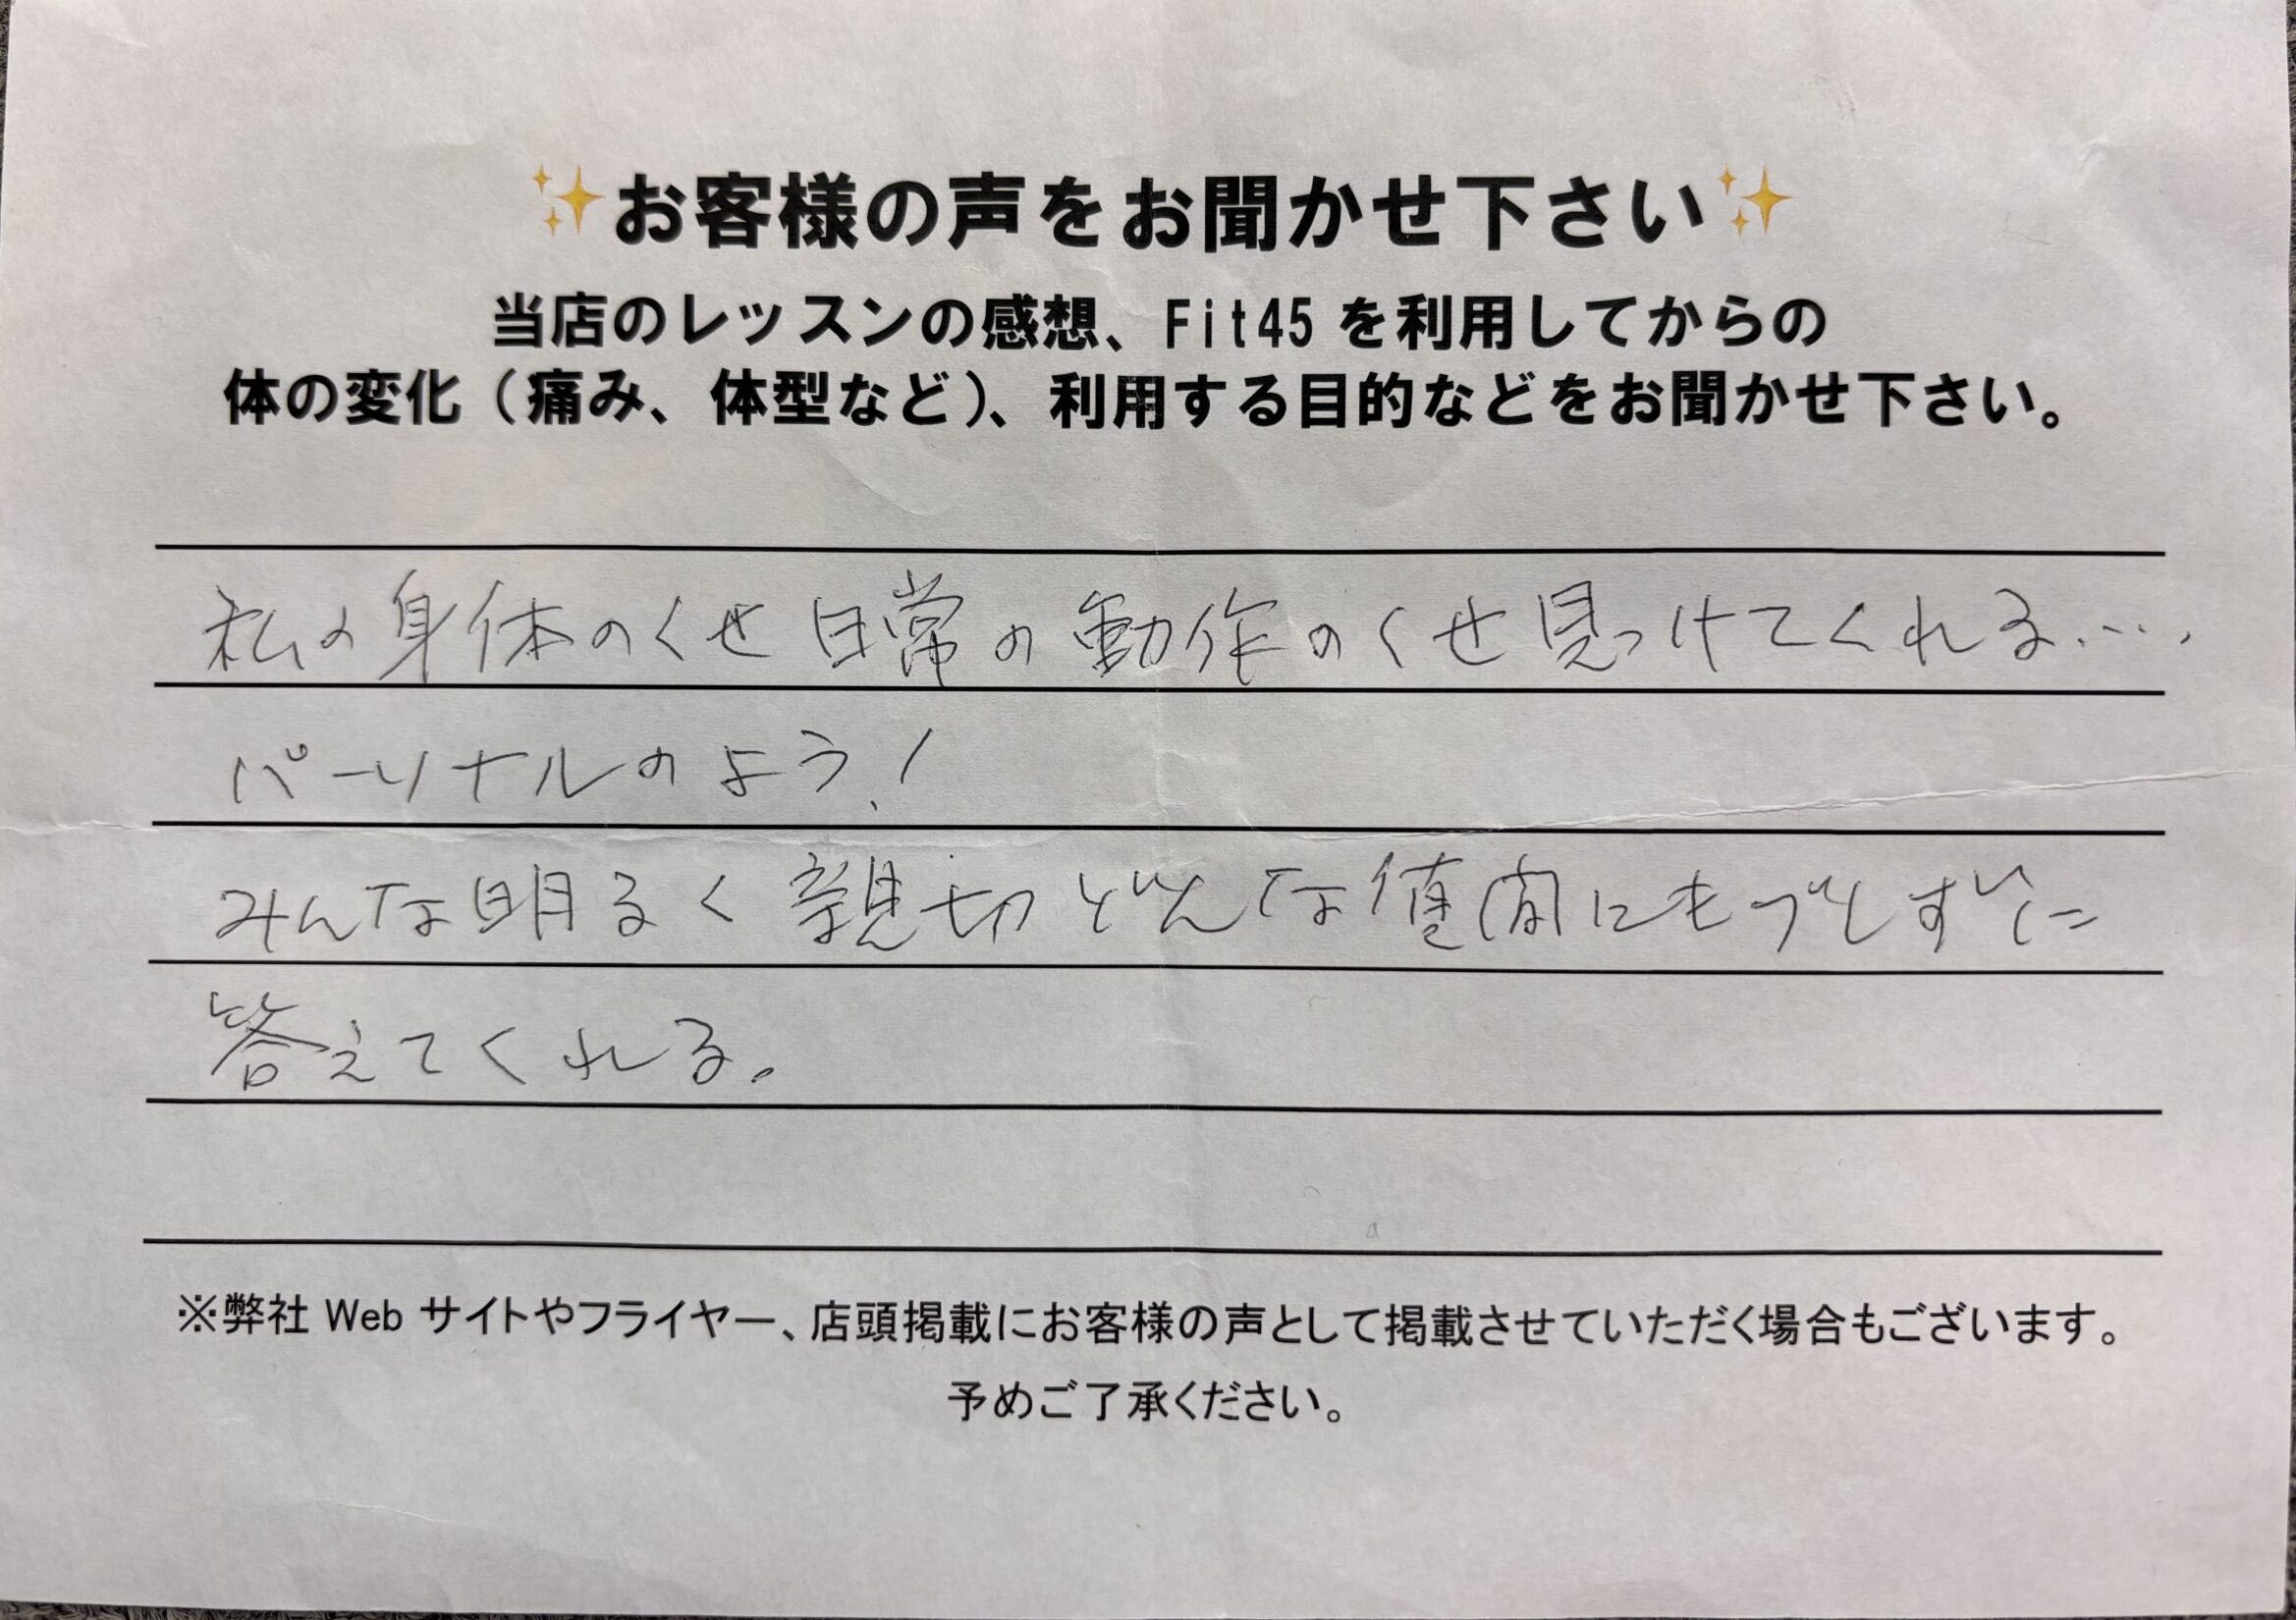 ✨お客様の声をお聞かせ下さい✨
当店のレッスンの感想、Fit45 を利用してからの
体の変化（痛み、体型など）、利用する目的などをお聞かせ下さい。
私の身体のくせ 日常の動作のくせ見つけてくれる....
パーソナルのよう!
みんな明るく親切どんな値問にもブレずに
答えてくれる。
※弊社 Web サイトやフライヤー、店頭掲載にお客様の声として掲載させていただく場合もございます。
予めご了承ください。